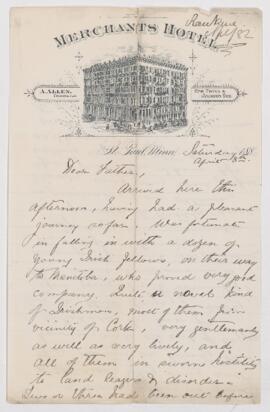 MERCHANTS HOTEL
A. ALLEN,
COR. THIRD &
JACKSON STS.
St. Paul, Minn. Saturday 188
April 8th
Dear Father,
Arrived here this
afternoon, having had a pleasant
journey so far. Was fortunate
in falling in with a dozen of
young Irish fellows, on their way
to Manitoba, who proved very good
company. Quite a novel kind
of Irishmen, most of them from
vicinity of Cork, very gentlemanly
as well as very lively, and
all of them in sworn hostility
to Land leagers & disorder.
Two or three had been out before